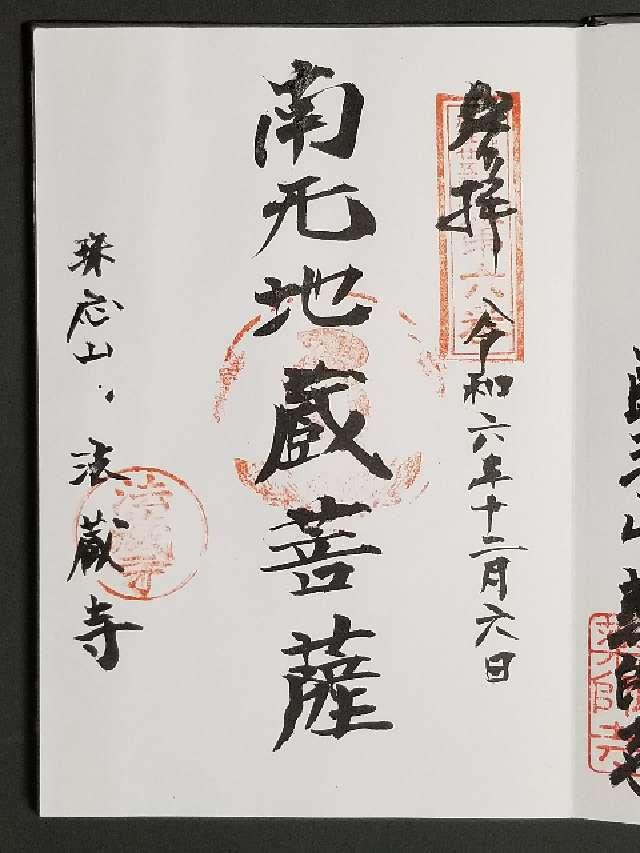 奉拝
令和六年十二月六日
南无地蔵菩薩
珠応山 法蔵寺
法蔵寺